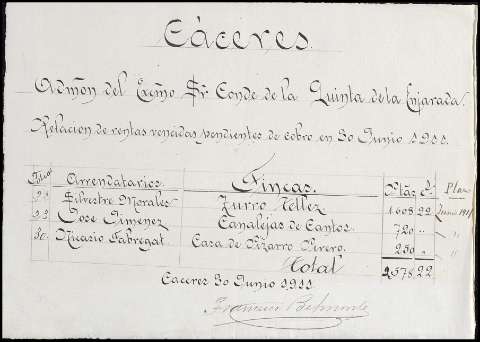 Cáceres.
Admón del Excmo Sr. Conde de la Quinta de la Enjarada.
Relacion de rentas vencidas pendientes de cobro en 30 Junio 1911.
Folios Arrendatarios Fincas. Ptas Cs Plazo
Silvestre Morales Zurro Tellez 1.608 22 Junio 1911
33 Jose Gimenez Canalejas de Cantos. 720 " "
30. Nicasio Fabregat. Casa de Pizarro Rivero. 250 " "
Total 2578 22
Caceres 30 Junio 1911
Francisco Belmonte